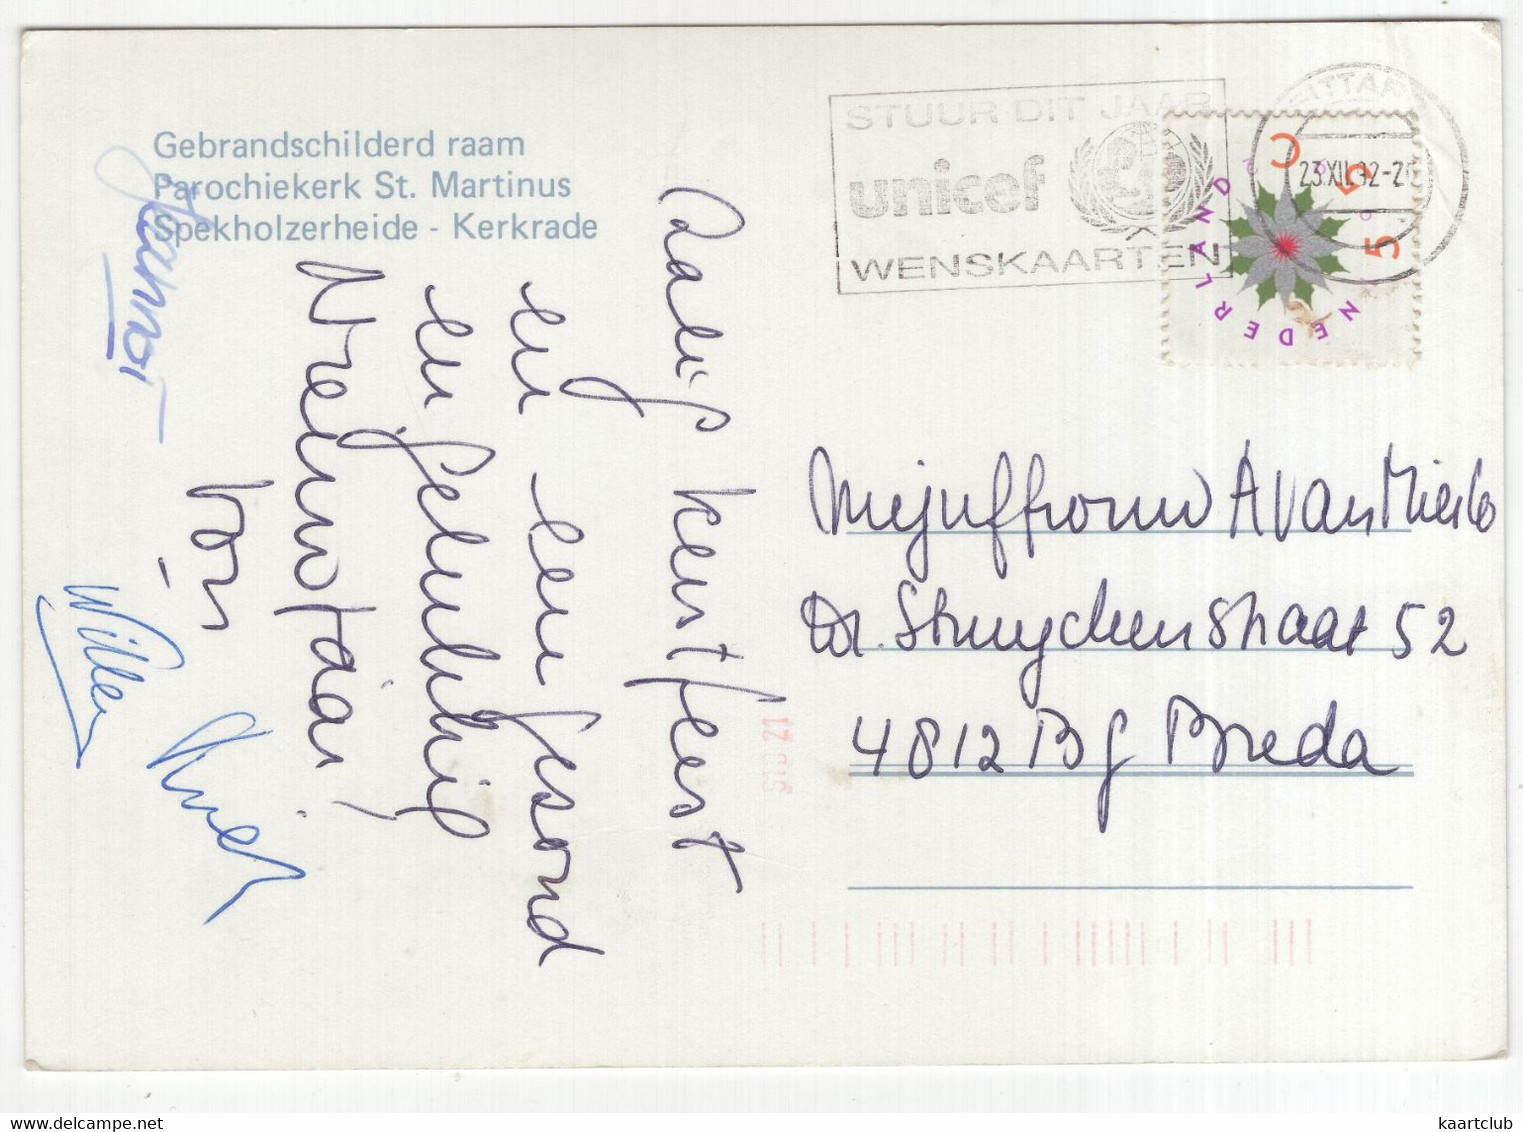 Gebrandschilderd raam
Parochiekerk St. Martinus
Spekholzerheide - Kerkrade
STUUR DIT JAAR
unicef
WENSKAARTEN
SITTARD
23.XII.92-2
NEDERLAND
55 c
Zalig Kerstfeest
en een gezond
en gelukkig
Nieuwjaar,
Willem
Mejuffrouw A van Mierlo
Dr. Struyckenstraat 52
4812 BG Breda
kaartclub